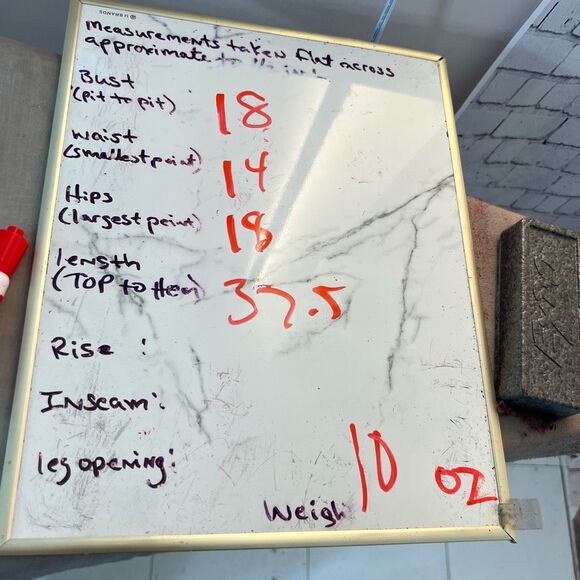 U BRANDS
Measurements taken flat across
approximate to 1/2 inch
Bust
(pit to pit) 18
Waist
(smallest point) 14
Hips
(largest point) 18
length
(TOP to Hem) 37.5
Rise :
Inseam:
leg opening:
Weigh 10 oz